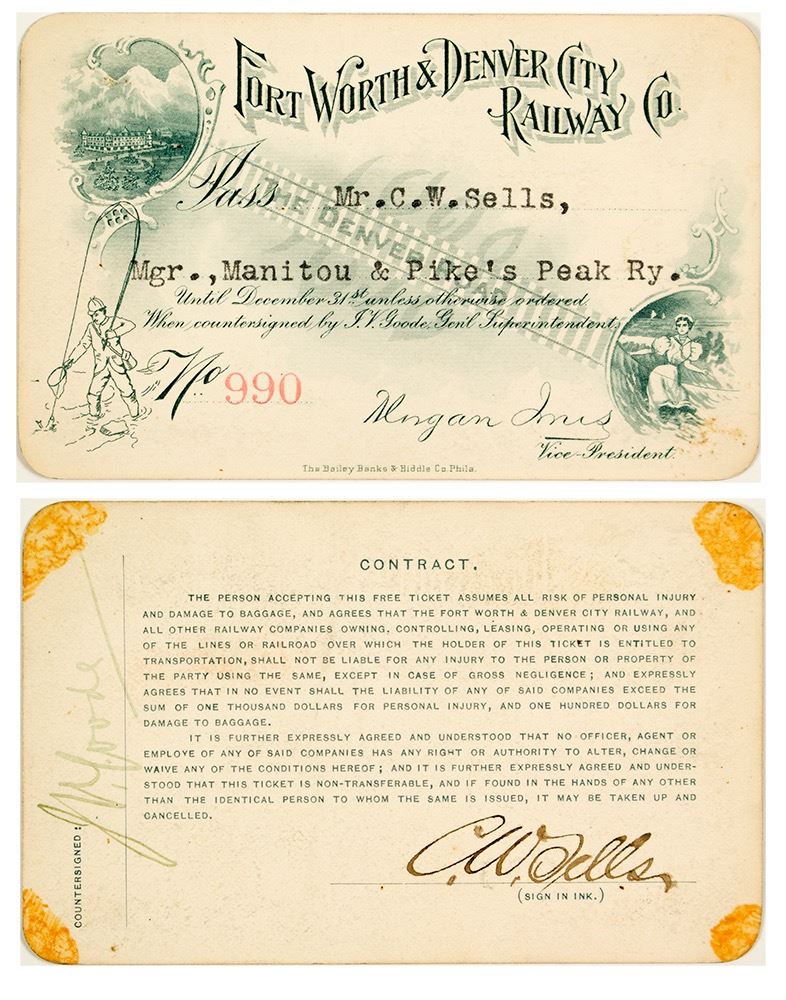 FORT WORTH & DENVER CITY
RAILWAY CO.
Pass Mr.C.W.Sells,
THE DENVER ROAD
Mgr.,Manitou & Pike's Peak Ry.
Until December 31st unless otherwise ordered
When countersigned by J.V. Goode, Gen'l Superintendent,
No 990
Morgan Jones
Vice-President.
The Bailey Banks & Biddle Co. Phila.
CONTRACT.
THE PERSON ACCEPTING THIS FREE TICKET ASSUMES ALL RISK OF PERSONAL INJURY
AND DAMAGE TO BAGGAGE, AND AGREES THAT THE FORT WORTH & DENVER CITY RAILWAY, AND
ALL OTHER RAILWAY COMPANIES OWNING, CONTROLLING, LEASING, OPERATING OR USING ANY
OF THE LINES OR RAILROAD OVER WHICH THE HOLDER OF THIS TICKET IS ENTITLED TO
TRANSPORTATION, SHALL NOT BE LIABLE FOR ANY INJURY TO THE PERSON OR PROPERTY OF
THE PARTY USING THE SAME, EXCEPT IN CASE OF GROSS NEGLIGENCE; AND EXPRESSLY
AGREES THAT IN NO EVENT SHALL THE LIABILITY OF ANY OF SAID COMPANIES EXCEED THE
SUM OF ONE THOUSAND DOLLARS FOR PERSONAL INJURY, AND ONE HUNDRED DOLLARS FOR
DAMAGE TO BAGGAGE.
IT IS FURTHER EXPRESSLY AGREED AND UNDERSTOOD THAT NO OFFICER, AGENT OR
EMPLOYE OF ANY OF SAID COMPANIES HAS ANY RIGHT OR AUTHORITY TO ALTER, CHANGE OR
WAIVE ANY OF THE CONDITIONS HEREOF; AND IT IS FURTHER EXPRESSLY AGREED AND UNDER-
STOOD THAT THIS TICKET IS NON-TRANSFERABLE, AND IF FOUND IN THE HANDS OF ANY OTHER
THAN THE IDENTICAL PERSON TO WHOM THE SAME IS ISSUED, IT MAY BE TAKEN UP AND
CANCELLED.
COUNTERSIGNED:
J.V. Goode
C.W. Sells,
(SIGN IN INK.)